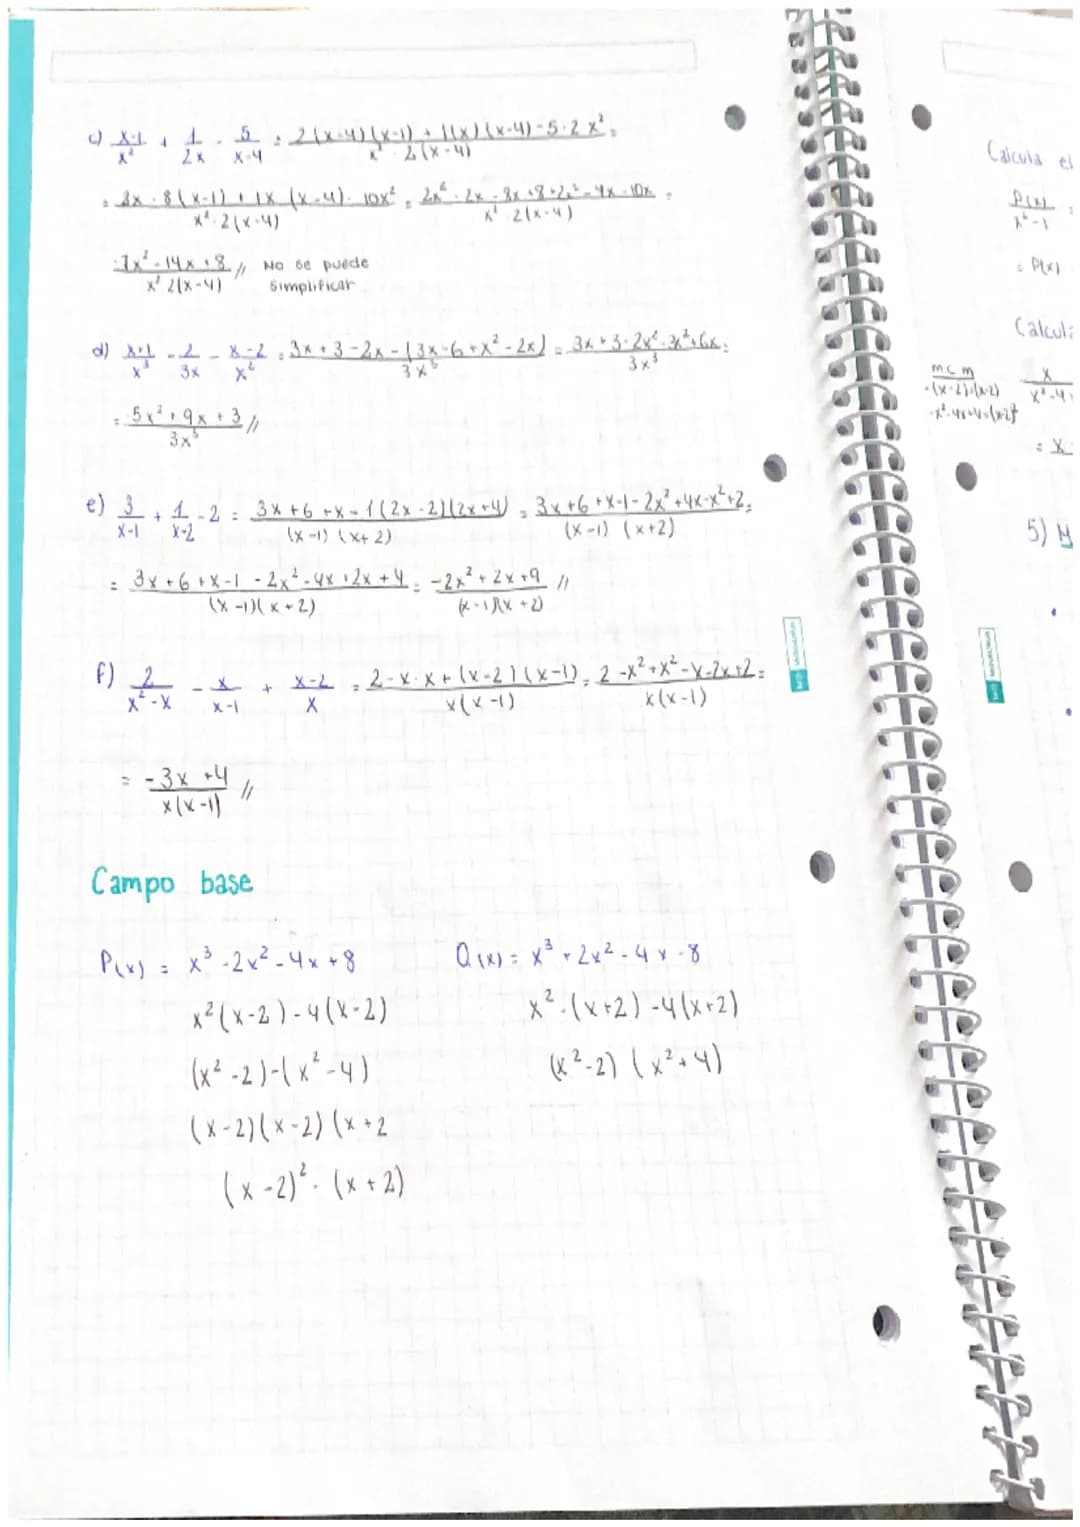 c) x-1/x² + 1/2x - 5/x-4 = 2(x-4)(x-1) + 1(x)(x-4) - 5·2x²/x²·2(x-4) =
= 2x-8(x-1) + 1x(x-4) - 10x²/x²·2(x-4) = 2x²-2x-8x+8+2x²-4x-10x/x²·2(x-4) =
-7x²-14x+8/x² 2(x-4) // No se puede
simplificar
d) x+1/x³ - 2/3x - x-2/x² = 3x+3-2x-(3x-6+x²-2x)/3x³ = 3x+3-2x²-3x²+6x/3x³ =
= -5x²+9x+3/3x³ //
e) 3/x-1 + 1/x+2 - 2 = 3x+6+x-1(2x-2)(2x+4)/(x-1)(x+2) = 3x+6+x-1-2x²+4x-x²+2/(x-1)(x+2) =
= 3x+6+x-1-2x²-4x+2x+4/(x-1)(x+2) = -2x²+2x+9/(x-1)(x+2) //
f) 2/x²-x - x/x-1 + x-2/x = 2-x·x+(x-2)(x-1)/x(x-1) = 2-x²+x²-x-2x+2/x(x-1) =
= -3x+4/x(x-1) //
Campo base
P(x) = x³-2x²-4x+8
x²(x-2)-4(x-2)
(x²-2)-(x²-4)
(x-2)(x-2)(x+2
(x-2)²·(x+2)
Q(x) = x³+2x²-4x-8
x²·(x+2)-4(x+2)
(x²-2)(x²+4)
Calcula el
P(x)/x²-1 =
= P(x)
Calcula
mcm
x/x²-4
= x
5) M